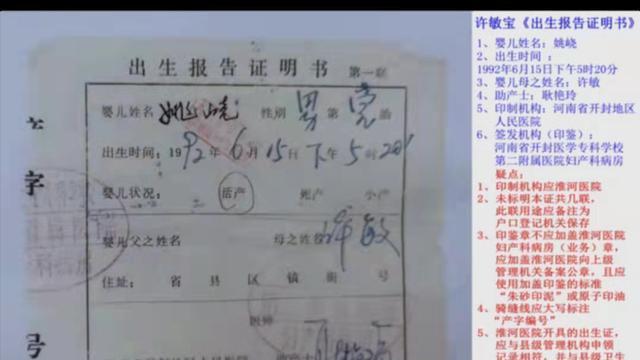 出生报告证明书 第一联
婴儿姓名 姚峣 性别 男 第 壹 胎
出生时间:1992年6月15日下午5时20分
婴儿状况: 活产 死产 小产
婴儿父之姓名 母之姓名 许敏
住址: 省 县 区 镇 街 号
医师
字
号
许敏宝《出生报告证明书》
1、婴儿姓名:姚峣
2、出生时间 :
1992年6月15日下午5时20分
3、婴儿母之姓名:许敏
4、助产士:耿艳玲
5、印制机构:河南省开封地区
人民医院
6、签发机构(印鉴):
河南省开封医学专科学校
第二附属医院妇产科病房
疑点:
1、印制机构应淮河医院
2、未标明本证共几联,
此联用途应备注为
户口登记机关保存
3、印鉴章不应加盖淮河医院
妇产科病房(业务)章,
应加盖淮河医院向上级
管理机关备案公章,且应
使用加盖印鉴的标准
“朱砂印泥”或原子印油
4、骑缝线应大写标注
“产字编号”
5、淮河医院开具的出生证,
应与县级管理机构申领